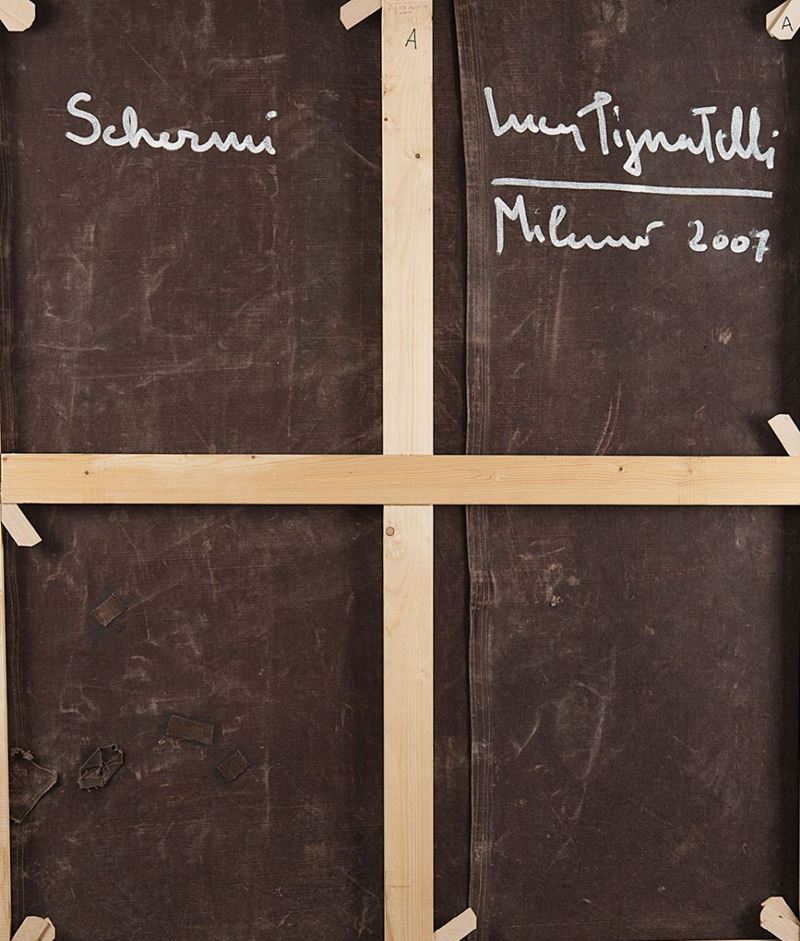 A
A
Schermi
Luca Pignatelli
Milano 2007